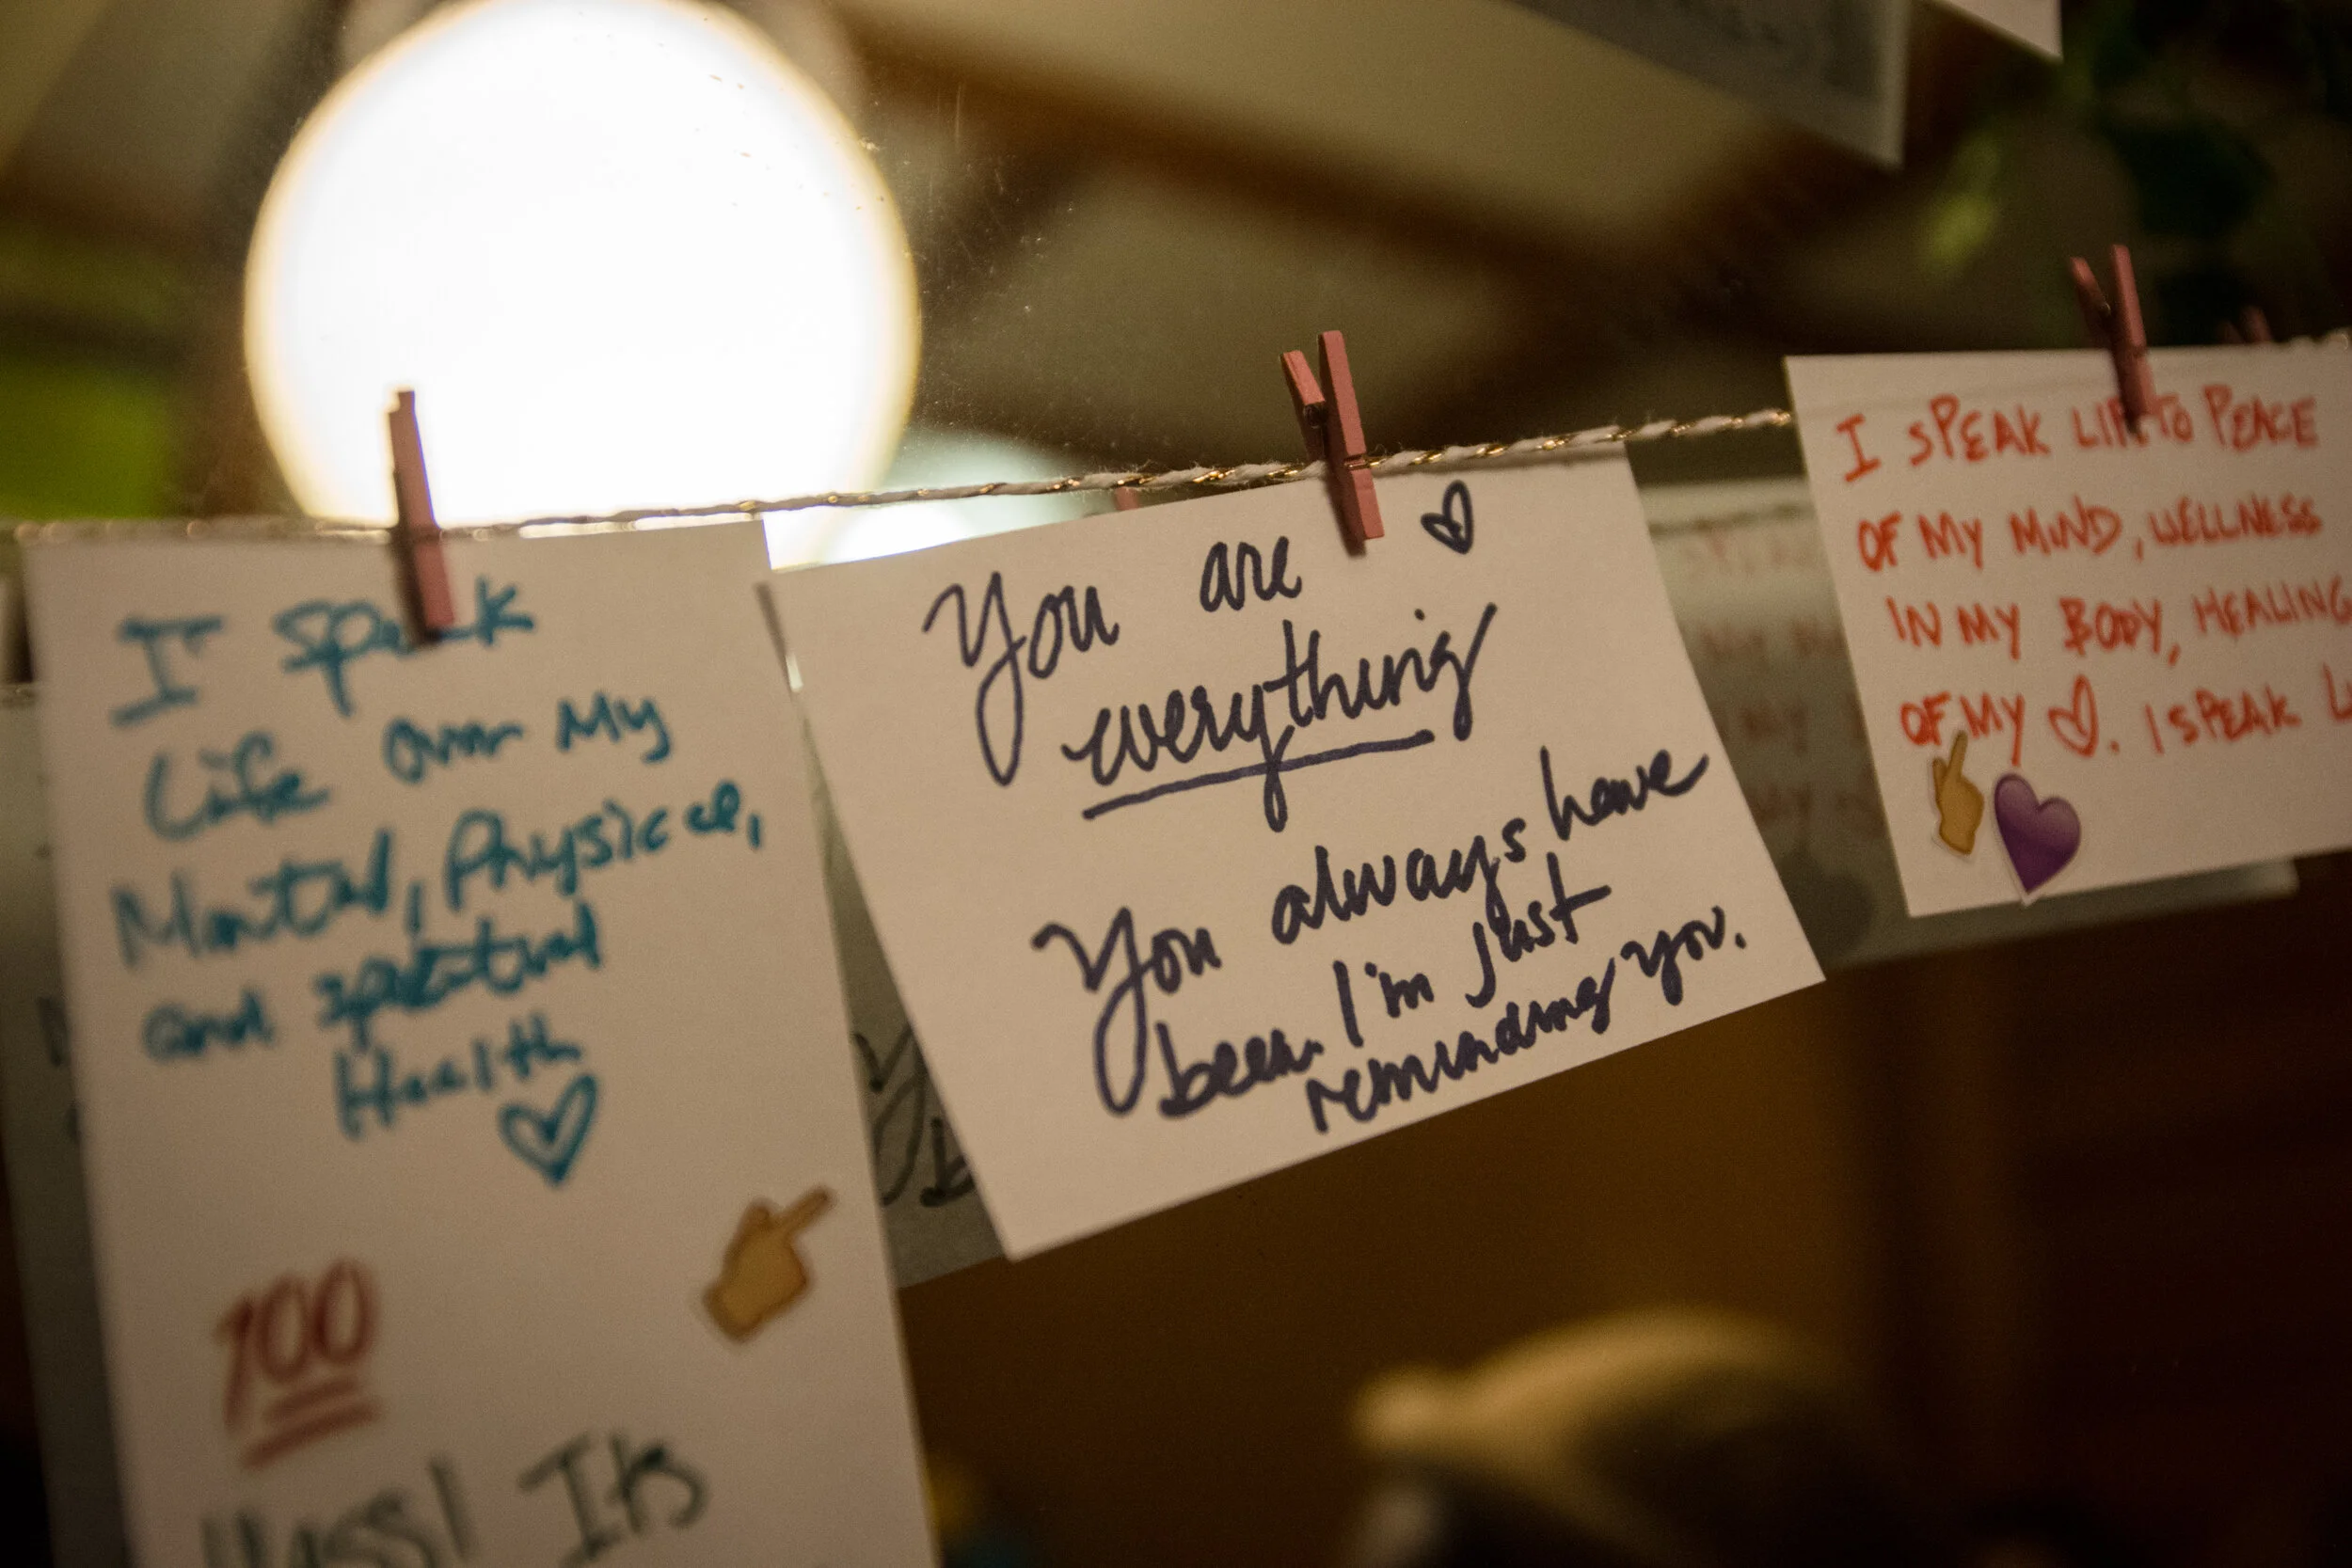 I speak
Life over My
Mental, Physical,
and spiritual
Health
100
Yass! Its
You are
everything
You always have
been. I'm just
reminding you.
I SPEAK LIFE TO PEACE
OF MY MIND, WELLNESS
IN MY BODY, HEALING
OF MY. I SPEAK